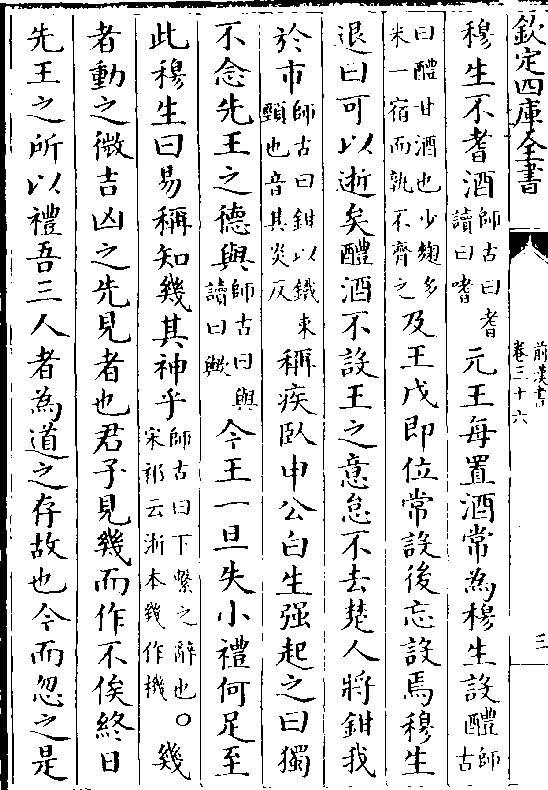 欽定四庫全書
前漢書
卷三十六
三
穆生不耆酒師古曰耆讀曰嗜元王每置酒常為穆生設醴師古
曰醴甘酒也少麹多米一宿而孰不齊之及王戊即位常設後忘設焉穆生
退曰可以逝矣醴酒不設王之意怠不去楚人將鉗我
於市師古曰鉗以鐵束頸也音其炎反稱疾臥申公白生强起之曰獨
不念先王之德與師古曰與讀曰歟今王一旦失小禮何足至
此穆生曰易稱知幾其神乎師古曰下繫之辭也○宋祁云浙本幾作機幾
者動之微吉凶之先見者也君子見幾而作不俟終日
先王之所以禮吾三人者為道之存故也今而忽之是